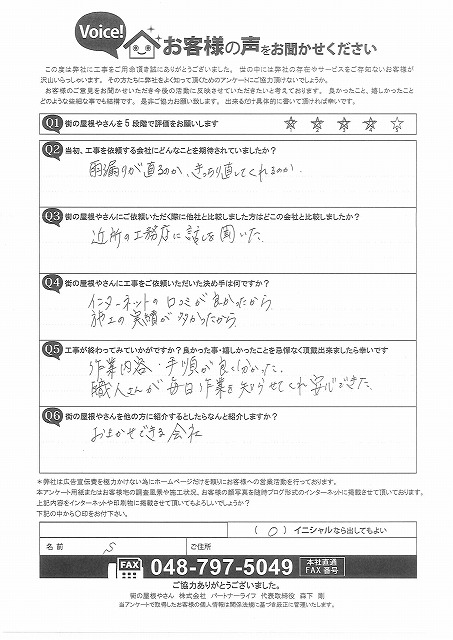 Voice!
お客様の声をお聞かせください
この度は弊社に工事をご用命頂き誠にありがとうございました。 世の中には弊社の存在やサービスをご存知ないお客様が
沢山いらっしゃいます。 その方たちに弊社をよく知って頂くためのアンケートにご協力頂けないでしょうか。
お客様のご意見をお聞かせいただき今後の活動に反映させていただきたいと考えております。 良かったこと、嬉しかったこと
どのような些細な事でも結構です。 是非ご協力お願い致します。 出来るだけ具体的に書いて頂ければ幸いです。
Q1 街の屋根やさんを5段階で評価をお願いします ☆ ☆ ☆ ☆ ☆
Q2 当初、工事を依頼する会社にどんなことを期待されていましたか?
雨漏りが直るのか、きっちり直してくれるのか
Q3 街の屋根やさんにご依頼いただく際に他社と比較しました方はどこの会社と比較しましたか?
近所の工務店に話しを聞いた
Q4 街の屋根やさんに工事をご依頼いただいた決め手は何ですか?
インターネットの口コミが良かったから
施工の実績が多かったから
Q5 工事が終わってみていかがですか?良かった事・嬉しかったことを忌憚なく頂戴出来ましたら幸いです
作業内容・手順が良く分かった
職人さんが毎日作業を知らせてくれ安心ができた
Q6 街の屋根やさんを他の方に紹介するとしたらなんと紹介しますか?
おまかせできる会社
*弊社は広告宣伝費を極力かけない為にホームページだけを頼りにお客様への営業活動を行っております。
本アンケート用紙またはお客様地の調査風景や施工状況、お客様の顔写真を随時ブログ形式のインターネットに掲載させて頂いております。
上記内容をインターネットや印刷物に掲載させて頂いてもよろしいでしょうか?
下記の中から〇印をお付下さい。
( O ) イニシャルなら出してもよい
名前 S ご住所
FAX 048-797-5049 本社直通 FAX番号
ご協力ありがとうございました。
街の屋根やさん 株式会社 パートナーライフ 代表取締役 森下 剛
当アンケートで取得したお客様の個人情報は関係法規に基づき厳正に管理いたします。